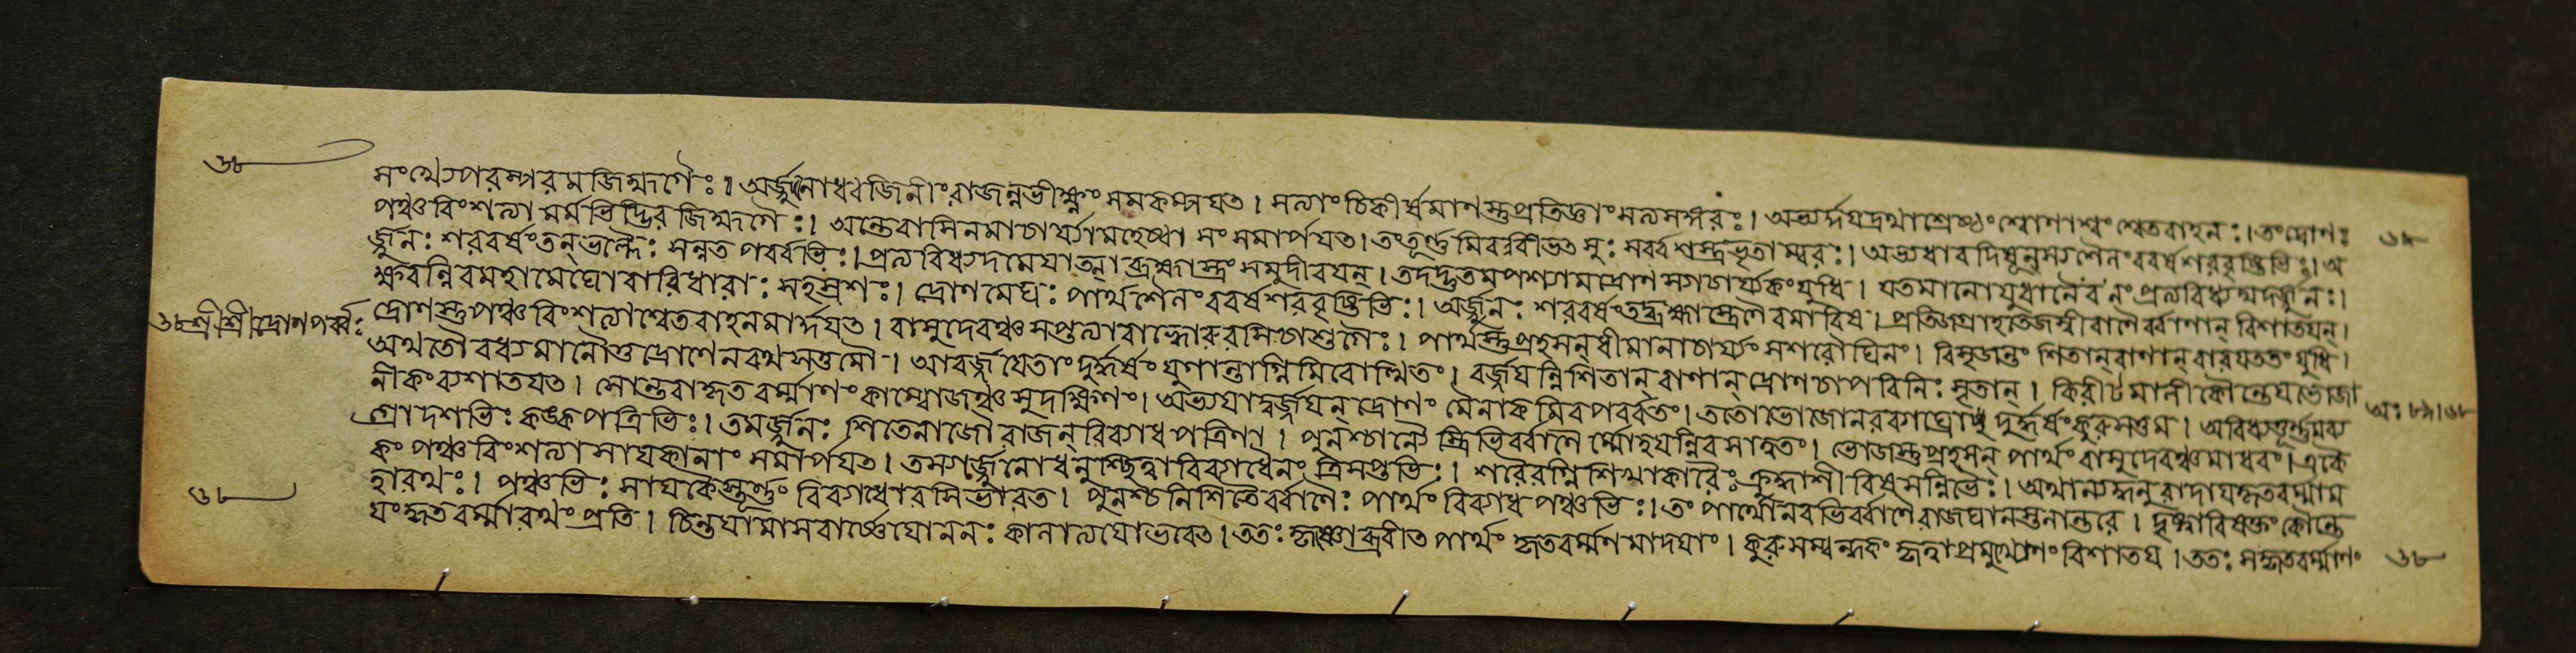 ৬৮
সংখ্যেপরস্পরমজিহ্মগৈঃ। অর্জ্জুনোধ্বজিনীংরাজন্নভীক্ষ্ণং সমকম্পযত। সত্যাংচিকীর্ষমাণস্তুপ্রতিজ্ঞাংসত্যসঙ্গরঃ। অভ্যর্দ্দযদ্রথাশ্রেষ্ঠং শোণাশ্বং শ্বেতবাহনঃ। তংদ্রোণঃ
পঞ্চবিংশত্যা মর্মভিদ্ভির জিহ্মগৈঃ। অন্তেবাসিনমাচার্য্যামহেষ্বা সং সমার্পযত। তংতূর্ণ্ণমিব বীভৎসুঃ সর্ব্ব শস্ত্রভৃতাম্বরঃ। অভ্যধাবদিষূন্ ববর্ষশরবৃষ্টিভিঃ। অ
র্জ্জুনঃ শরবর্ষংতন্ ভল্লৈঃ সন্নত পর্ব্বভিঃ। প্রত্যবিধ্যদমেযাত্মা ব্রহ্মাস্ত্রং সমুদীরযন্। তদদ্ভুতমপশ্যামদ্রোণ স্যাচার্য্যকংযুধি। যতমানোযুবানৈবনংপ্রত্যবিধ্যদ্যদর্জ্জুনঃ।
ক্ষরন্নিবমহামেঘোবারিধারাঃ সহস্রশঃ। দ্রোণমেঘঃ পার্থশৈলংববর্ষশরবৃষ্টিভিঃ। অর্জ্জুনঃ শরবর্ষংতদ্ব্রহ্মাস্ত্রেণৈবমারিষ। প্রতিজগ্রাহতেজস্বীবাণৈর্ব্বাণান্ বিশাতযন্।
৬৮ শ্রীশ্রীদ্রোণপর্ব্বঃ দ্রোণস্তুপঞ্চবিংশত্যাশ্বেতবাহনমার্দ্দযত। বাসুদেবঞ্চসপ্তত্যাবাহ্বোরুরসিচাশুগৈঃ। পার্থস্তুপ্রহসন্ ধীমানাচার্য্যং সশরৌঘিনং। বিসৃজন্তং শিতান্ বাণান্ বারযততংযুধি।
অথতৌবধ্যমানৌতুদ্রোণেনরথসত্তমৌ। আবর্জ্জযেতাংদুর্দ্ধর্ষংযুগান্তাগ্নিমিবোত্থিতং। বর্জ্জযন্নিশিতান্ বাণান্ দ্রোণচাপবিনিঃসৃতান্। কিরীটমালীকৌন্তেযভোজা
নীকংব্যশাতযত। সোন্তরাকৃতবর্ম্মাণংকাম্বোজঞ্চসুদক্ষিণং। অভ্যযাদ্বর্জ্জযন্ দ্রোণংমৈনাকমিবপর্ব্বতং। ততোভোজোনরব্যাঘ্রোদুর্দ্ধর্ষংকুরুসত্তম। অবিধ্যত্তূর্ণ্ণমব্য অঃ ৬৮
গ্রোদশভিঃ কঙ্কপত্রিভিঃ। তমর্জ্জুনঃ শিতেনাজৌরাজন্ বিব্যাধপত্রিণা। পুনশ্চান্যৈস্ত্রিভির্ব্বাণৈর্ম্মোহযন্নিবসাত্বতং। ভোজস্তুপ্রহসন্ পার্থং বাসুদেবঞ্চমাধবং। একৈ
কংপঞ্চবিংশত্যাসাযকানাংসমার্পযত। তস্যার্জ্জুনোধনুশ্ছিত্বাবিব্যাধৈনংত্রিসপ্তভিঃ। শরৈরগ্নিশিখাকারৈঃ ক্রুদ্ধাশীবিষসন্নিভৈঃ। অথান্যদ্ধনুরাদাযকৃতবর্ম্মাম
হারথঃ। পঞ্চভিঃ সাযকৈস্তূর্ণ্ণং বিব্যাধোরসিভারত। পুনশ্চনিশিতৈর্ব্বাণৈঃ পার্থংবিব্যাধপঞ্চভিঃ। তংপার্থোনবভির্ব্বাণৈরাজঘানস্তনান্তরে। দৃষ্ট্বাবিষক্তংকৌন্তে
৬৮
যংকৃতবর্ম্মারথংপ্রতি। চিন্তযামাসবার্ষ্ণেযোননঃ কালাত্যযোভবেত। ততঃ কৃষ্ণোব্রবীত পার্থং কৃতবর্ম্মণিমাদযাং। কুরুসম্বন্ধকং কৃত্বাপ্রমথ্যৈনংবিশাতয। ততঃ সকৃতবর্ম্মাণং
৬৮